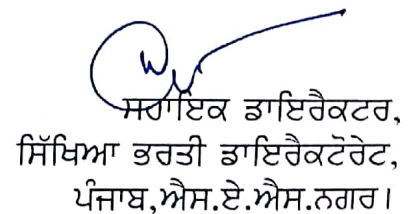 ਸਹਾਇਕ ਡਾਇਰੈਕਟਰ,
ਸਿੱਖਿਆ ਭਰਤੀ ਡਾਇਰੈਕਟੋਰੇਟ,
ਪੰਜਾਬ,ਐਸ.ਏ.ਐਸ.ਨਗਰ।